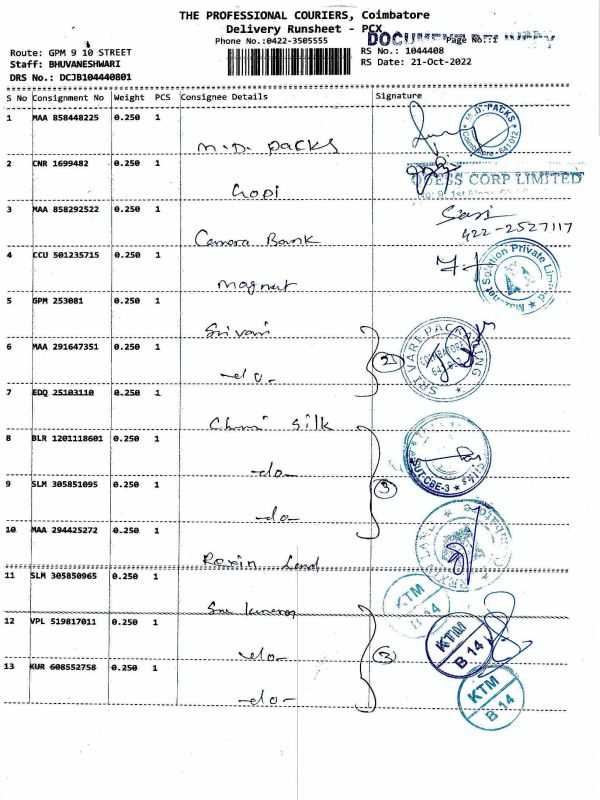 THE PROFESSIONAL COURIERS, Coimbatore
Delivery Runsheet - PCX
Phone No.:0422-3505555
Page No.:1
Route: GPM 9 10 STREET
RS No.: 1044408
Staff: BHUVANESHWARI
RS Date: 21-Oct-2022
DRS No.: DCJB104440801
S No Consignment No Weight PCS Consignee Details Signature
1 MAA 858448225 0.250 1
M.D. PACKS
M.D. PACKS
Coimbatore - 641 012
2 CNR 1699482 0.250 1
Gopi
QUESS CORP LIMITED
3 MAA 858292522 0.250 1
Sasi
422-2527117
Canara Bank
4 CCU 501235715 0.250 1
Magnet
Magnet Solution Private Limited
5 GPM 253081 0.250 1
Srivari
SRI VARI PACKAGING
COIMBATORE
641 012
6 MAA 291647351 0.250 1
-do-
2
7 EDQ 25103110 0.250 1
Silk
8 BLR 1201118601 0.250 1
-do-
SUT.CBE-3
9 SLM 305851095 0.250 1
3
-do-
10 MAA 294425272 0.250 1
11 SLM 305850965 0.250 1
Sri
KTM
B 14
12 VPL 519817011 0.250 1
-do-
3
KTM
B 14
13 KUR 608552758 0.250 1
-do-
KTM
B 14